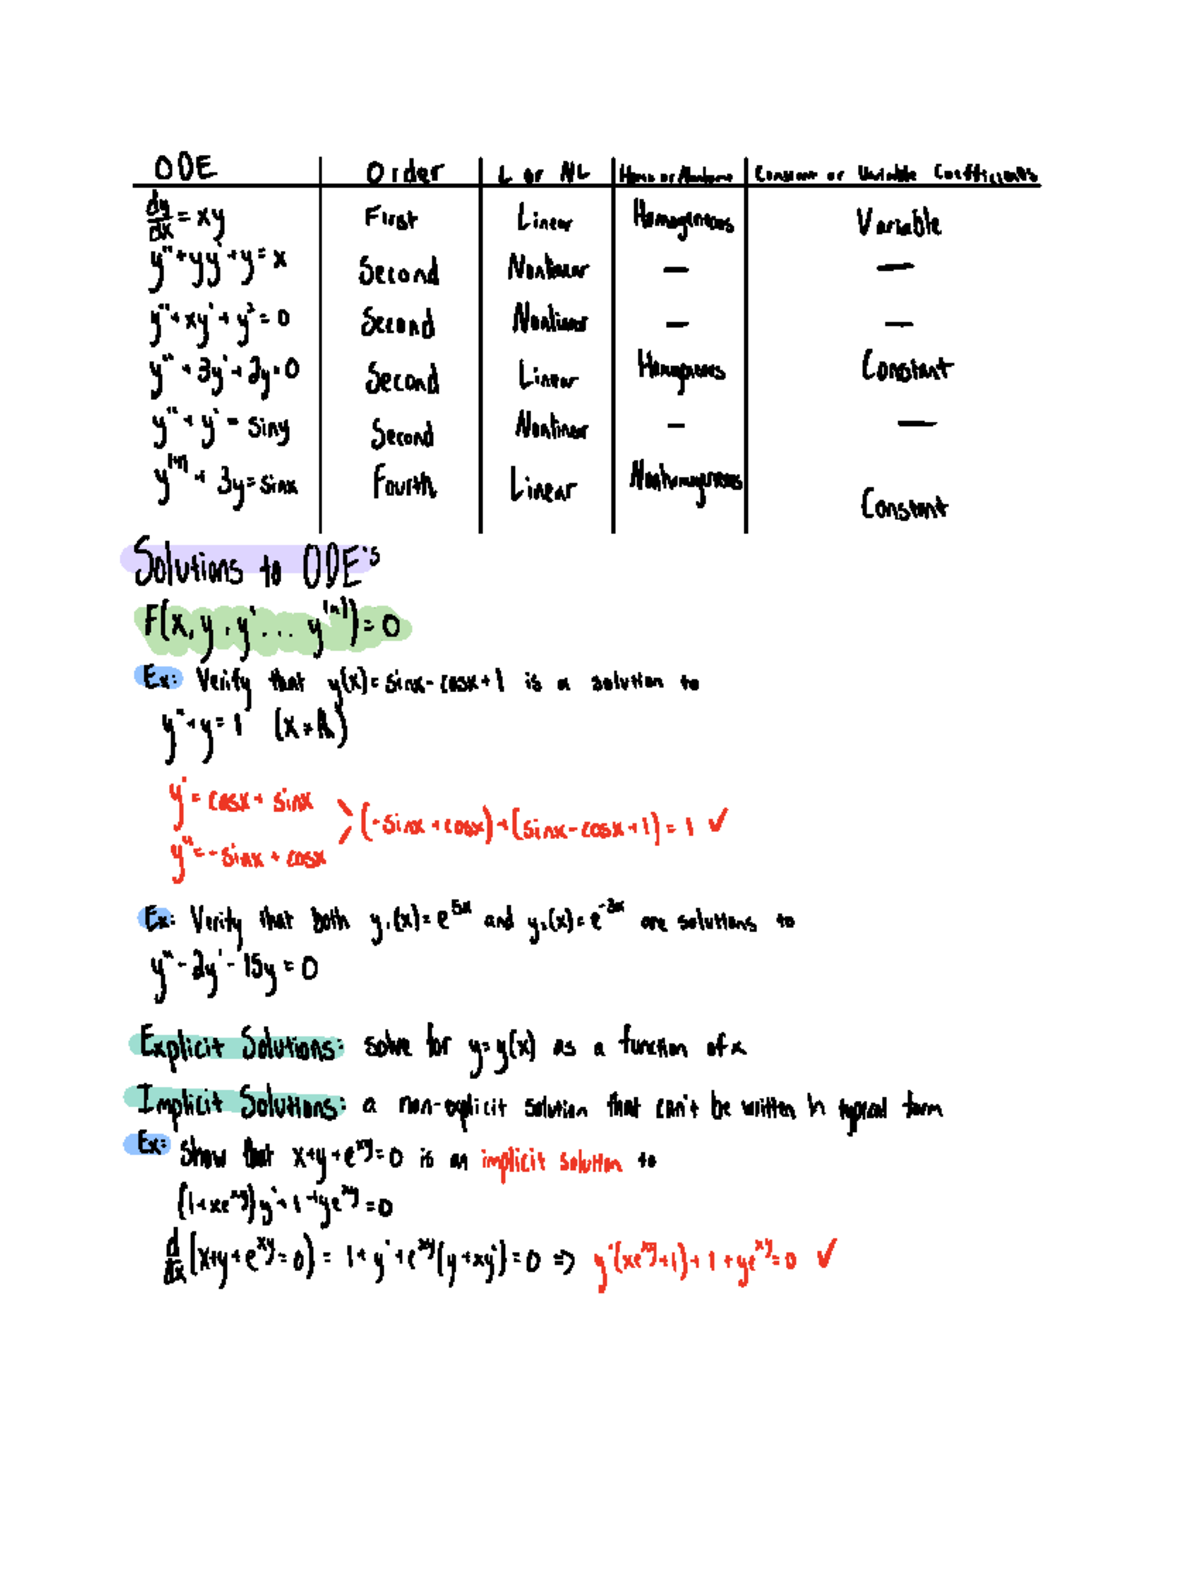 ODE Order L or NL Homo or Nonhomo Constant or Variable Coefficients
dy/dx = xy First Linear Homogeneous Variable
y'' + yy' + y = x Second Nonlinear — —
y'' + xy' + y² = 0 Second Nonlinear — —
y'' + 3y' + 2y = 0 Second Linear Homogeneous Constant
y'' + y' = siny Second Nonlinear — —
y'''' + 3y = sinx Fourth Linear Nonhomogeneous Constant
Solutions to ODE's
F(x, y, y' ... y⁽ⁿ⁾) = 0
Ex: Verify that y(x) = sinx - cosx + 1 is a solution to
y'' + y = 1
y' = cosx + sinx
y'' = -sinx + cosx
(-sinx + cosx) + (sinx - cosx + 1) = 1 ✓
Ex: Verify that both y₁(x) = e^5x and y₂(x) = e^-3x are solutions to
y'' - 2y' - 15y = 0
Explicit Solutions: solve for y = y(x) as a function of x
Implicit Solutions: a non-explicit solution that can't be written in typical form
Ex: Show that x + y + e^xy = 0 is an implicit solution to
(1 + xe^xy) y' + 1 + ye^xy = 0
d/dx (x + y + e^xy = 0) = 1 + y' + e^xy (y + xy') = 0 => y'(xe^xy + 1) + 1 + ye^xy = 0 ✓